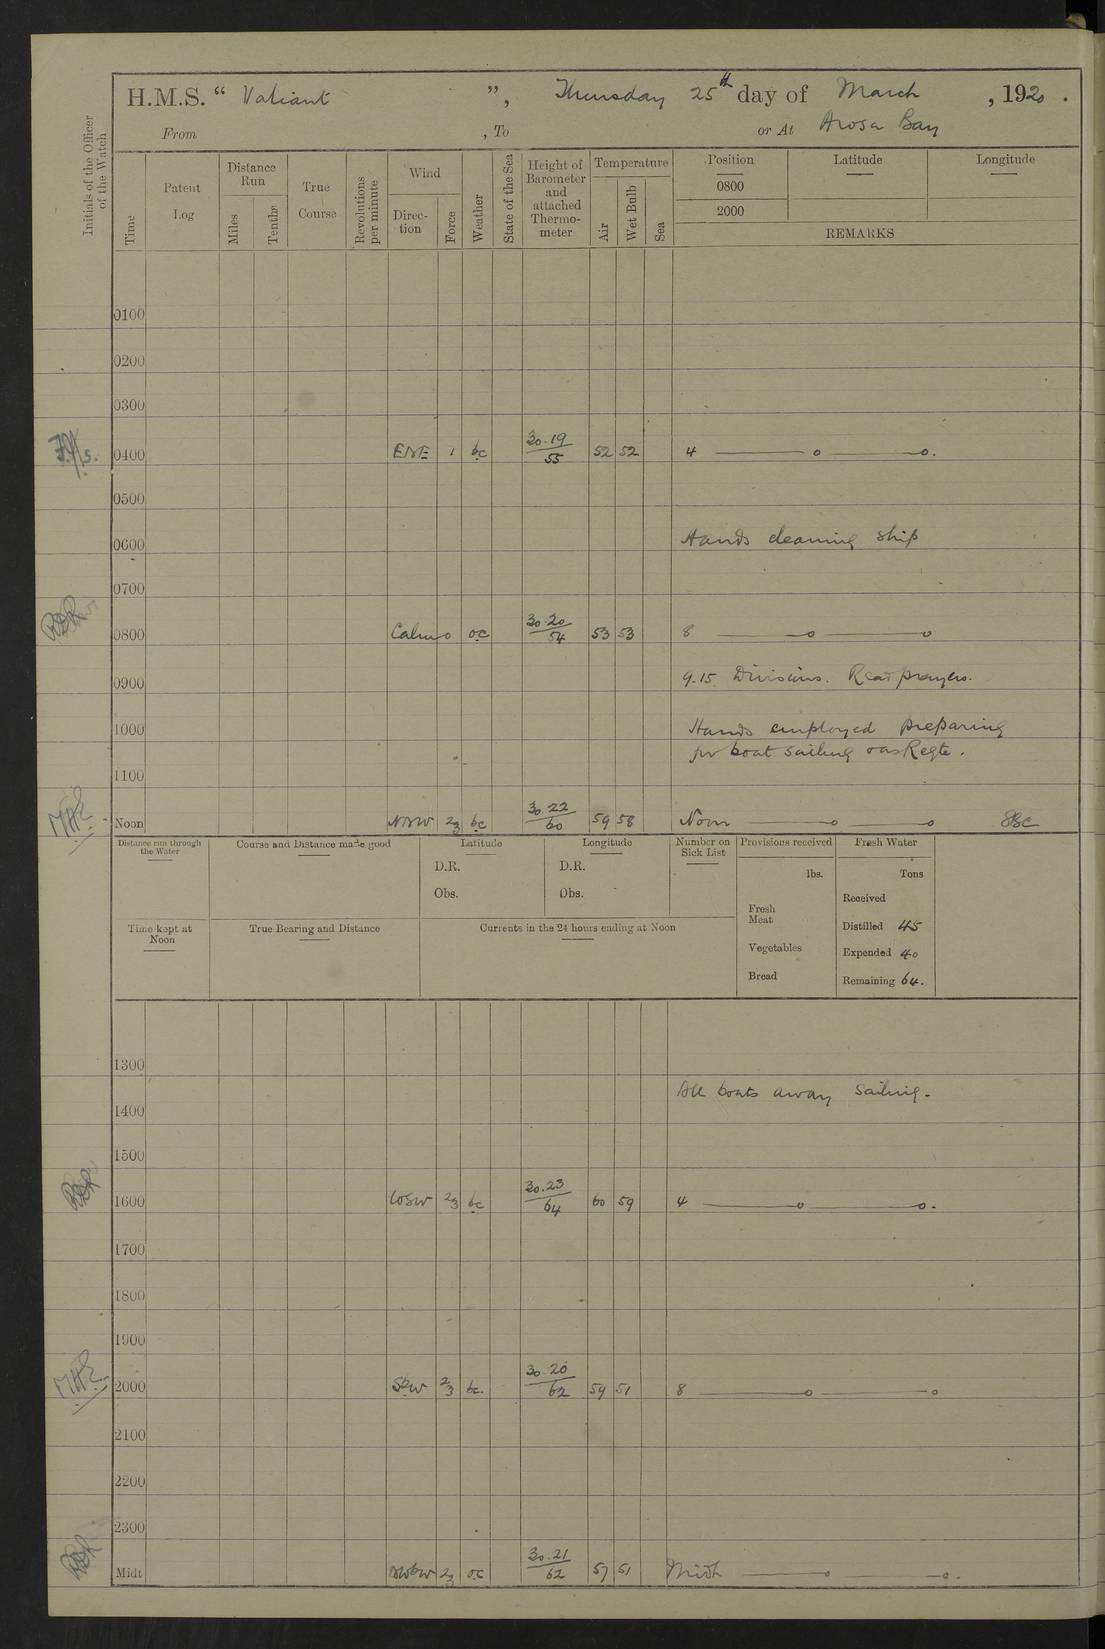 H.M.S. “ Valiant ”, Thursday 25th day of March , 1920 .
From , To or At Arosa Bay
Initials of the Officer of the Watch
Time
Patent Log
Distance Run
Miles
Tenths
True Course
Revolutions per minute
Wind
Direc-tion
Force
Weather
State of the Sea
Height of Barometer and attached Thermo-meter
Temperature
Air
Wet Bulb
Sea
Position
0800
2000
Latitude
Longitude
REMARKS
0100
0200
0300
0400 ENE 1 bc 30.19/55 52 52 4 ——o——o.
0500
0600 Hands cleaning ship
0700
0800 Calm 0 oc 30.20/54 53 53 8 ——o——o
0900 9.15 Divisions. Read prayers.
1000 Hands employed preparing
for boat sailing
1100
Noon NNW 2/3 bc 30.22/60 59 58 Noon ——o——o
Distance run through the Water
Course and Distance made good
Latitude
D.R.
Obs.
Longitude
D.R.
Obs.
Number on Sick List
Provisions received
lbs.
Fresh Meat
Vegetables
Bread
Fresh Water
Tons
Received
Distilled 45
Expended 40
Remaining 64.
Time kept at Noon
True Bearing and Distance
Currents in the 24 hours ending at Noon
1300
All boats away sailing.
1400
1500
1600 WSW 2/3 bc 30.23/64 60 59 4 ——o——o.
1700
1800
1900
2000 SbW 2/3 bc 30.20/62 59 51 8 ——o——o
2100
2200
2300
Midt 2/3 oc 30.21/62 57 51 Midt ——o——o.